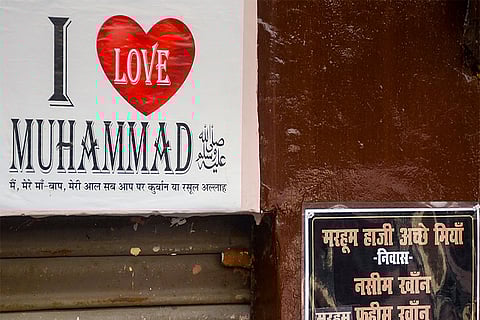 I LOVE
MUHAMMAD ﷺ
मैं, मेरे माँ-बाप, मेरी आल सब आप पर कुर्बान या रसूल अल्लाह
मरहूम हाजी अच्छे मियाँ
-निवास-
नसीम खाँन
मरहूम फहीम खाँन